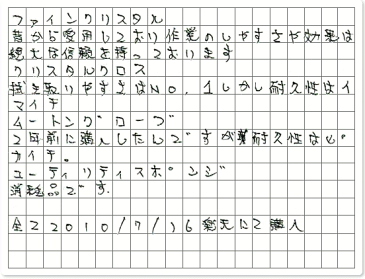 ファインクリスタル
昔から愛用しており作業のしやすさや効果は
絶大な信頼を持っております
クリスタルクロス
拭き取りやすさはNO.1しかし耐久性はイ
マイチ
ムートングローブ
2年前に購入したんですが耐久性はピ
カイチ。
ユーティリティスポンジ
消耗品です.
全て2010/7/16楽天にて購入